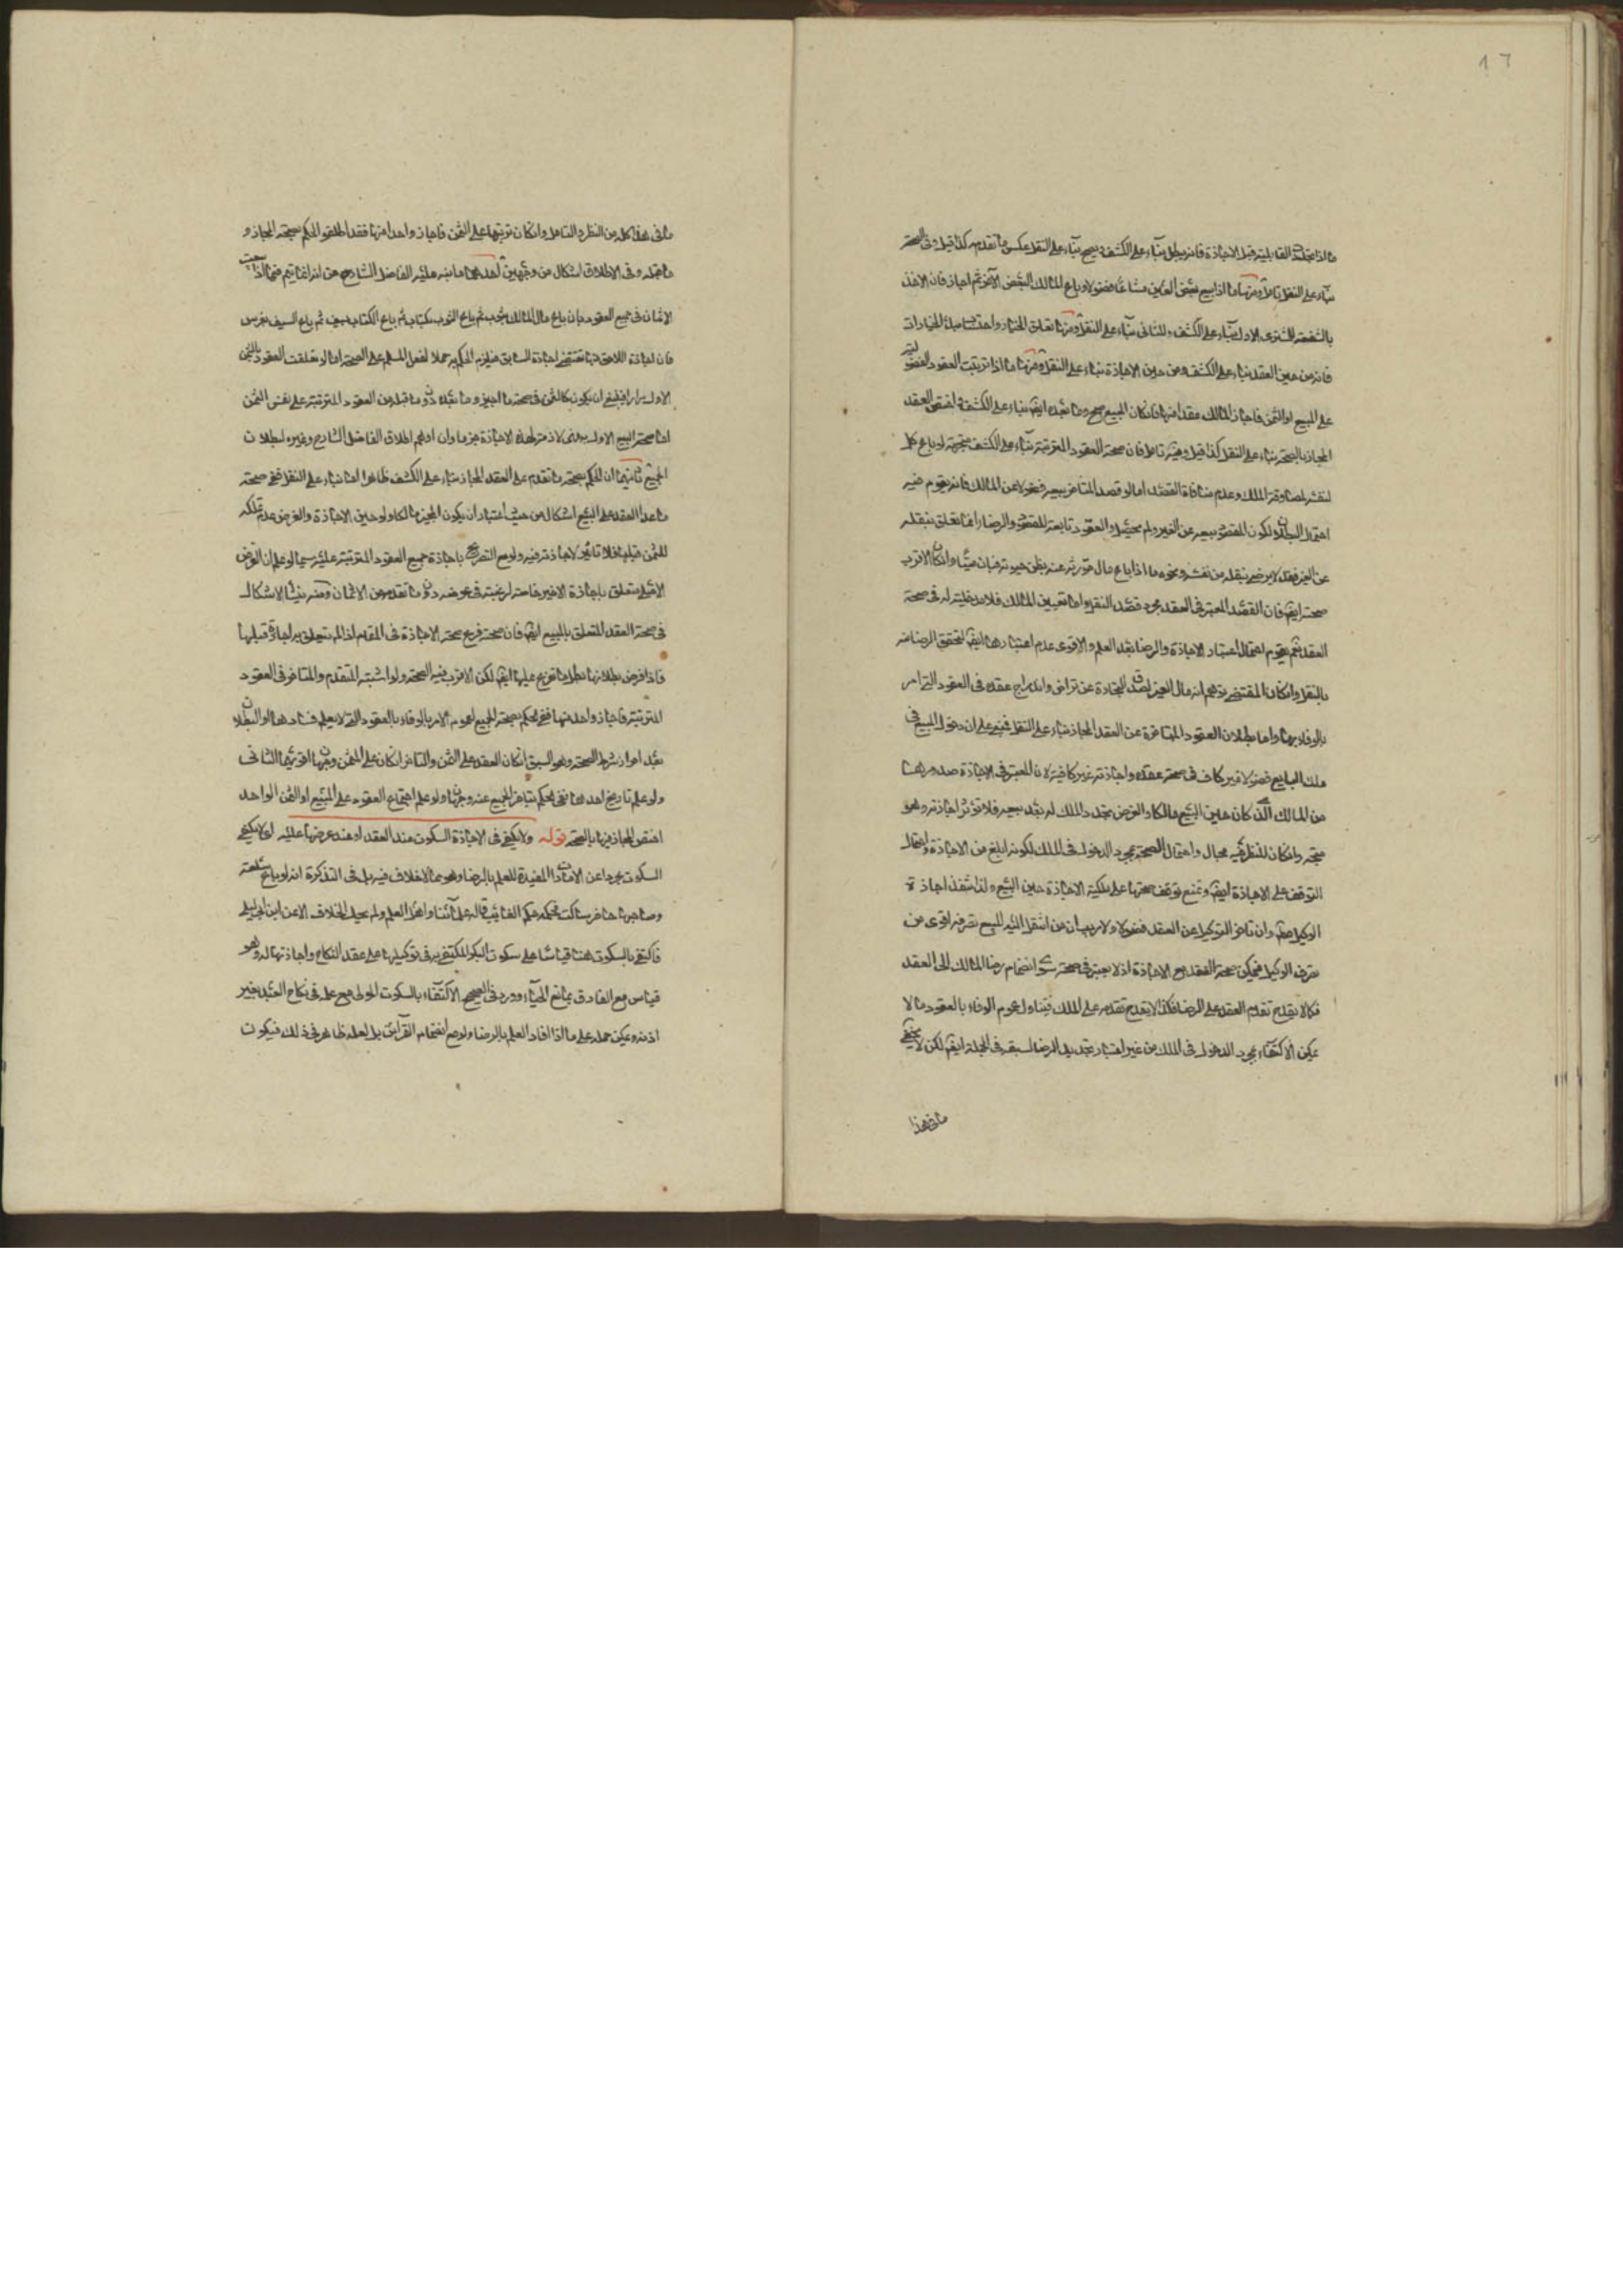 ١٦
ما اذا تجدد القابلية قبل الاجازة فانه يبطل بناء على الكشف ويصح بناء على النقل عكس ما تقدم كذا قيل وفي الصحة
بناء على النقل تامل ومنها ما اذا بيع بعض العين مشاعا فضولا وباع المالك البعض الآخر ثم اجاز فان الاخذ
بالشفعة للمشتري الاول بناء على الكشف وللثاني بناء على النقل ومنها تعلق الخيار واحتساب مبدأ الخيارات
فانه من حين العقد بناء على الكشف ومن حين الاجازة بناء على النقل ومنها ما اذا ترتبت العقود الفضولية
على المبيع او الثمن فاجاز المالك عقدا منها فان كان المبيع صح وما بعده ايضا بناء على الكشف واختص العقد
المجاز بالصحة بناء على النقل كذا قيل وفيه تامل فان صحة العقود المترتبة بناء على الكشف متجهة لو باع كل
لنفسه لمصادفة الملك وعدم منافاة القصد اما لو قصد المتاخر بيعه فضولا عن المالك فانه يقوم فيه
احتمال البطلان لكون المقصود بيعه عن الغير ولم يحصل والعقود تابعة للقصود والرضا انما تعلق بنقله
عن الغير فقد لا يرضى بنقله من نفسه ونحوه ما اذا باع مال مورثه عنه بظن حيوته فبان ميتا وان كان الاقرب
صحته ايضا فان القصد المعتبر في العقد مجرد قصد النقل واما تعيين المالك فلا مدخلية له في صحة
العقد ثم يقوم احتمال اعتبار الاجازة والرضا بعد العلم والاقوى عدم اعتبارها ايضا لتحقق الرضا منه
بالنقل وان كان المقتضي توهم انه مال الغير لصدق التجارة عن تراض واندراج عقده في العقود التي امر
بالوفاء بها واما بطلان العقود المتاخرة عن العقد المجاز بناء على النقل فمبني على ان دخول المبيع في
ملك البايع فضولا غير كاف في صحة عقده واجازته غير كافية لان المعتبر في الاجازة صدورها
من المالك الذي كان حين البيع مالكا والفرض تجدد الملك له بعد بيعه فلا تؤثر اجازته وهو
متجه وان كان للنظر فيه مجال واحتمال الصحة بمجرد الدخول في الملك لكونه ابلغ من الاجازة واحتمال
التوقف على الاجازة ايضا وتمنع توقف صحتها على ملكية الاجازة حين البيع ولذا تنفذ اجازة
الوكيل وان تاخر التوكيل عن العقد فضولا ولا ريب ان من انتقل اليه المبيع تصرفه اقوى من
تصرف الوكيل فيمكن صحة العقد مع الاجازة اذ لا يعتبر في صحته سوى انضمام رضا المالك الى العقد
فكما لا يقدح تقدم العقد على الرضا فكذا لا يقدح تقدمه على الملك فيتناوله عموم الوفاء بالعقود مالا
يمكن الاكتفاء بمجرد الدخول في الملك من غير اعتبار تجديد الرضا لسبقه في الجملة ايضا لكن لا يخفى
ما في هذا
ما في هذا كله من النظر والتامل وان كان ترتبها على الثمن فاجاز واحدا منها فقد اطلقوا الحكم بصحة المجاز و
ما قبله وفي الاطلاق اشكال من وجهين احدهما ما نبه عليه الفاضل الشارح من انه انما يتم فيما اذا بيعت
الاثمان في جميع العقود بان باع مال المالك بثوب ثم باع الثوب بكتاب ثم باع الكتاب بسيف ثم باع السيف بفرس
فان اجازة اللاحق منها تقتضي اجازة السابق فيلزم الحكم به حملا لفعل المسلم على الصحة اما لو تعلقت العقود بالثمن
الاول مرارا فينبغي ان يكون كالمثمن في صحة ما اجيز وما بعده دون ما قبله من العقود المترتبة على نفس الثمن
اما صحة البيع الاول بمعنى لازمة لهذه الاجازة جزما وان اوهم اطلاق الفاضل الشارح وغيره لبطلان
الجميع ثانيهما ان الحكم بصحة ما تقدم على العقد المجاز بناء على الكشف ظاهر اما بناء على النقل ففي صحة
ما عدا العقد على المبيع اشكال من حيث اعتبار ان يكون المجيز مالكا ولو حين الاجازة والفرض عدم تملكه
للثمن قبلها فلا تاثير لاجازته فيه ولو مع التصريح باجازة جميع العقود المترتبة عليه سيما لو علم ان الغرض
الاصلي متعلق باجازة الاخير خاصة لرغبته في عوضه دون ما تقدمه من الاثمان ومنه ينشأ الاشكال
في صحة العقد المتعلق بالمبيع ايضا فان صحته فرع صحة الاجازة في المقام اذا لم يتعلق به اجازة قبلها
فاذا فرض بطلانها بطل ما تفرع عليها ايضا لكن الاقرب فيه الصحة ولو اشتبه المتقدم والمتاخر في العقود
المترتبة فاجاز واحدا منها ففي الحكم بصحة الجميع لعموم الامر بالوفاء بالعقود التي لا يعلم فسادها او البطلان
بعد احراز شرط الصحة وهو السبق ان كان العقد على الثمن والتاخر ان كان على المثمن وجهان اقويهما الثاني
ولو علم تاريخ احدهما ففي الحكم بتاخر الجميع عنه وجهان ولو علم اجتماع العقود على المبيع او الثمن الواحد
اختص المجاز منها بالصحة قوله ولا يكفي في الاجازة السكوت عند العقد او عند عرضها عليه اي لا يكفي
السكوت مجردا عن الامارات المفيدة للعلم بالرضا وهو مما لا خلاف فيه بل في التذكرة انه لو باع سلعته
وصاحبها حاضر ساكت فحكمه حكم الغايب قاله علماؤنا واكثر اهل العلم ولم يحك الخلاف الا عن ابن ابي ليلى
فاكتفى بالسكوت هنا قياسا على سكوت البكر المكتفى به في توكيلها على عقد النكاح واجازتها له وهو
قياس مع الفارق بمانع الحياء وورد في الصحيح الاكتفاء بالسكوت المولى مع علمه في نكاح العبد بغير
اذنه ويمكن حمله على ما اذا افاد العلم بالرضا ولو مع انضمام القراين بل لعله ظاهر في ذلك فيكون